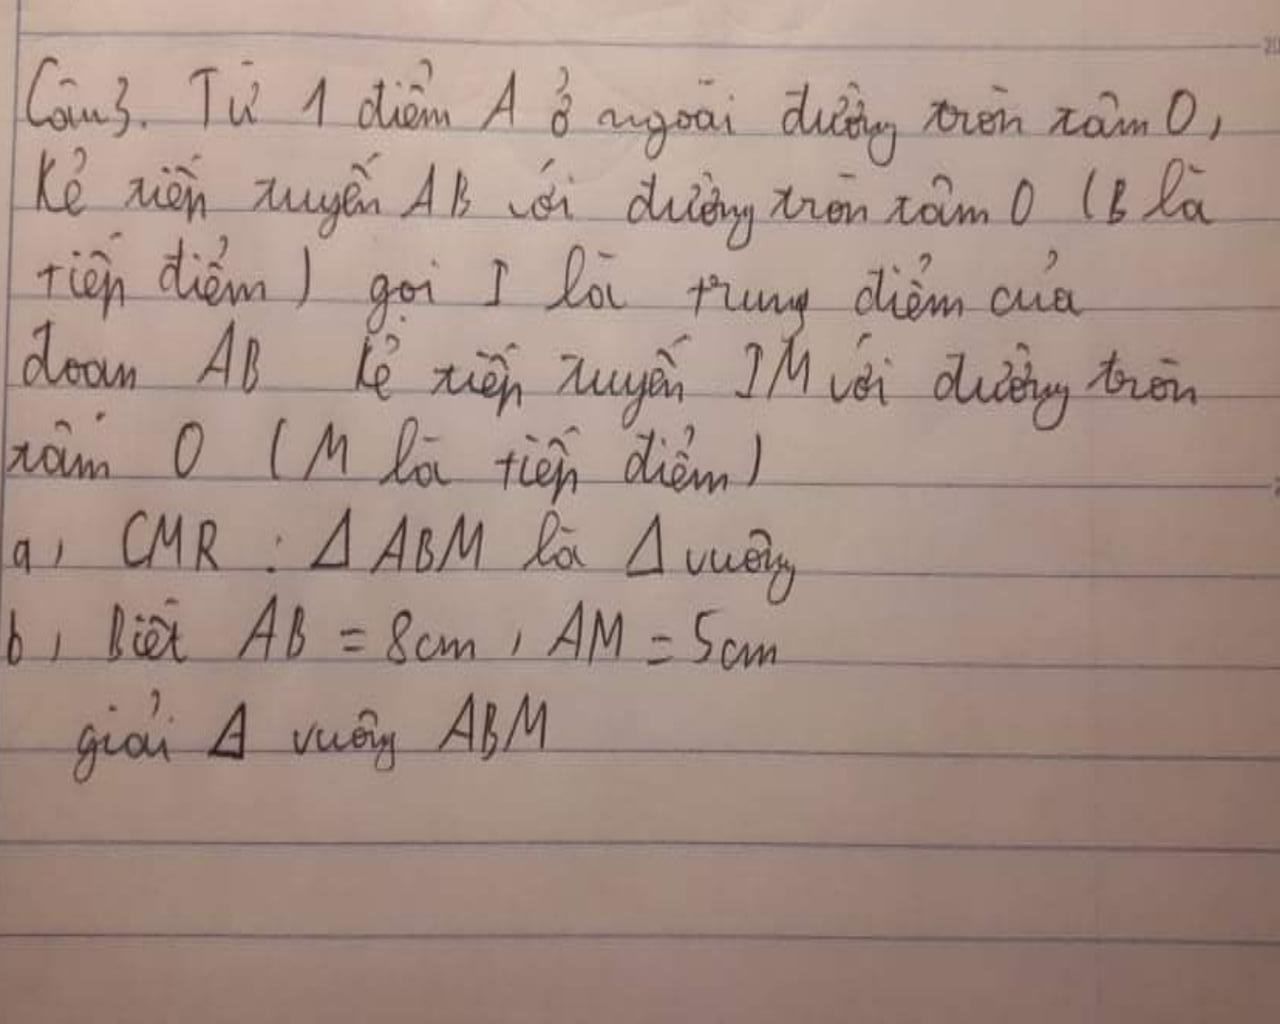 Câu 3. Từ 1 điểm A ở ngoài đường tròn tâm O,
Kẻ tiếp tuyến AB với đường tròn tâm O (B là
tiếp điểm) gọi I là trung điểm của
đoạn AB kẻ tiếp tuyến IM với đường tròn
tâm O (M là tiếp điểm)
a, CMR : Δ ABM là Δ vuông
b, Biết AB = 8cm, AM = 5cm
giải Δ vuông ABM